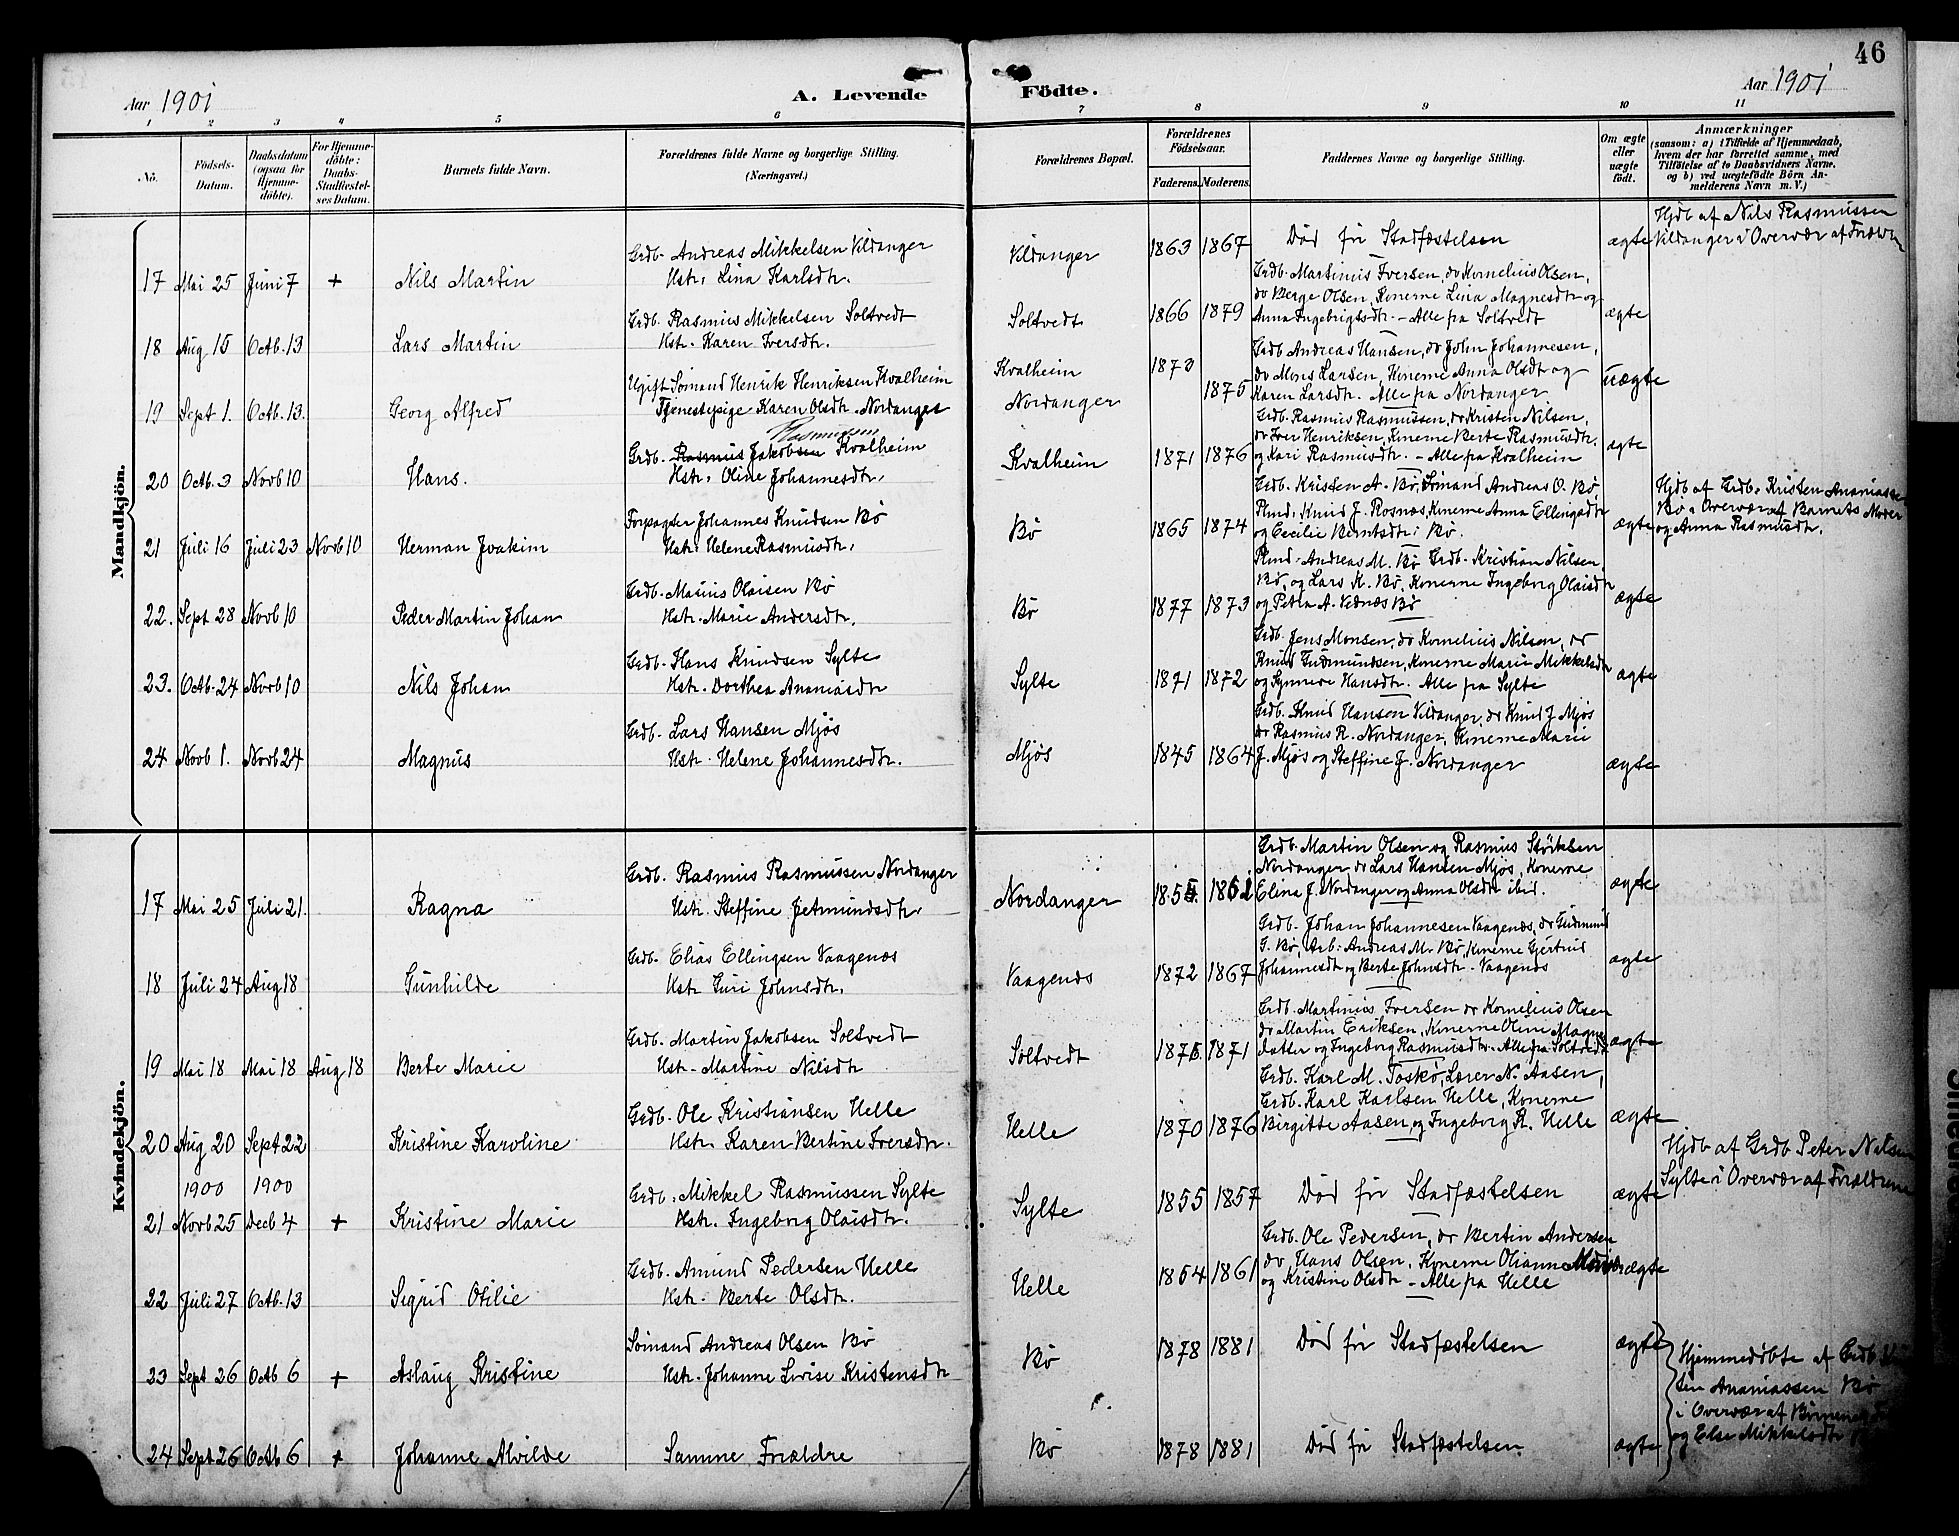 46
Aar 1901
A. Levende Födte.
Aar 1901
1 2 3 4 5 6 7 8 9 10 11
No.
Födsels-Datum.
Daabsdatum (ogsaa for Hjemme-döbte).
For Hjemme-döbte: Daabs-Stadfæstel-ses Datum.
Barnets fulde Navn.
Forældrenes fulde Navne og borgerlige Stilling.
(Næringsvei.)
Forældrenes Bopæl.
Forældrenes Födselsaar.
Faderens. Moderens.
Faddernes Navne og borgerlige Stilling.
Om ægte eller uægte födt.
Anmærkninger
(saasom: a) i Tilfælde af Hjemmedaab,
hvem der har forrettet samme, med
Tilföielse af to Daabsvidners Navne,
og b) ved uægtefödte Börn An-
melderens Navn m. V.)
Mandkjön.
17 Mai 25 Juni 7 + Nils Martin
Grdb. Andreas Mikkelsen Vildanger
Hstr. Lina Karlsdtr.
Vildanger 1863 1867
Død før Stadfæstelsen
ægte
Hjdb af Nils Rasmussen
Vildanger i Overvær af
18 Aug 15 Octb. 13 Lars Martin
Grdb. Rasmus Mikkelsen Soltvedt
Hstr. Karen Iversdtr.
Soltvedt 1866 1879
Grdb. Martinus Iversen, do Kornelius Olsen,
do Berge Olsen, Konerne Lina Magnesdtr og
Anna Ingebrigtsdtr. - Alle fra Soltvedt
ægte
19 Sept 1. Octb. 13. Georg Alfred
Ugift Sømand Henrik Henriksen Kvalheim
Tjenestepige Karen Olsdtr. Nordanger
Kvalheim 1873
Nordanger 1875
Grdb Andreas Hansen, do John Johannesen,
do Mons Larsen, Konerne Anna Olsdtr og
Karen Larsdtr. Alle fra Nordanger
uægte
20 Octb. 3 Novb 10 Hans.
Rasmussen
Grdb. Rasmus Jakobsen Kvalheim
Hstr. Oline Johannesdtr.
Kvalheim 1871 1876
Grdb. Rasmus Rasmussen, do Kristen Nilsen,
do Iver Henriksen, Konerne Berte Rasmusdtr.
og Kari Rasmusdtr. - Alle fra Kvalheim
ægte
21 Juli 16 Juli 23 Novb 10 Herman Joakim
Forpagter Johannes Knudsen Bø
Hstr. Helene Rasmusdtr.
Bø 1865 1874
Grdb. Kristen A. Bø, Sømand Andreas O. Bø,
Knud J. Rosnæs, Konerne Anna Ellingsdtr
og Cecilie Berntsdtr i Bø.
ægte
Hjdb af Grdb. Kristen Ananiassen
Bø i Overvær af Barnets Moder
og Anna Rasmusdtr.
22. Sept 28 Novb 10 Peder Martin Johan
Grdb. Marius Olaisen Bø
Hstr. Marie Andersdtr.
Bø 1877 1873
Andreas M. Bø Grdb. Kristian Nilsen
Bø, og Lars K. Bø, Konerne Ingeborg Olaisdtr
og Petra A. Vednæs Bø
ægte
23. Octb. 24 Novb 10 Nils Johan
Grdb. Hans Knudsen Sylte
Hstr. Dorthea Ananiasdtr
Sylte 1871 1872
Grdb. Jens Monsen, do Kornelius Nilsen, do
Knud Gudmundsen, Konerne Marie Mikkelsdtr
og Synneve Hansdtr. Alle fra Sylte
ægte
24 Novb 1. Novb 24 Magnus
Grdb. Lars Hansen Mjøs
Hstr. Helene Johannesdtr.
Mjøs 1845 1864
Grdb. Knud Hansen Vildanger, do Knud J Mjøs
do Rasmus R. Nordanger, Konerne Marie
J. Mjøs og Steffine J. Nordanger
ægte
Kvindekjön.
17 Mai 25 Juli 21. Ragna
Grdb. Rasmus Rasmussen Nordanger
Hstr. Steffine Jetmundsdtr.
Nordanger
Grdb. Martin Olsen og Rasmus Størksen
Nordanger do Lars Hansen Mjøs, Konerne
Elina J. Nordanger og Anna Olsdtr ibid.
ægte
18 Juli 24 Aug 18 Gunhilde
Grdb. Elias Ellingsen Vaagenæs
Hstr Guri Johnsdtr.
Vaagenæs 1872 1867
Grdb. Johan Johannesen Vaagenæs, do Gudmund
G. Bø, Arb: Andreas M. Bø, Konerne Gjertrud
Johannesdtr og Berte Johnsdtr. Vaagenæs
ægte
19 Mai 18 Mai 18 Aug 18 Berte Marie
Grdb. Martin Jakobsen Soltvedt
Hstr. Martine Nilsdtr
Soltvedt 1871
Grdb. Martinus Iversen do Kornelius Olsen
do Martin Eriksen, Konerne Oline Magne
datter og Ingeborg Rasmusdtr. Alle fra Soltvedt
ægte
20 Aug 20 Sept 22 Kristine Karoline
Grdb. Ole Kristiansen Helle
Hstr. Karen Bertine Iversdtr.
Helle 1870 1876
Grdb. Karl M. Toskø, Lærer N. Aasen,
Grdb. Karl Karlsen Helle, Konerne
Birgitte Aasen, og Ingeborg K. Helle
ægte
1900 1900
21 Novb 25 Decb 4 + Kristine Marie
Grdb. Mikkel Rasmussen Sylte
Hstr. Ingeborg Olaisdtr.
Sylte 1855 1857
Død før Stadfæstelsen
ægte
Hjdb af Grdb Peter Nilsen
Sylte i Overvær af Forældrene
22 Juli 27 Octb. 13 Sigrid Otilie
Grdb. Amund Pedersen Helle
Hstr. Berte Olsdtr.
Helle 1854 1861
Grdb. Ole Pedersen, do Bertin Andersen
do Hans Olsen, Konerne Olianne
og Kristine Olsdtr - Alle fra Helle
ægte
23 Sept 26 Octb 6 + Aslaug Kristine
Sømand Andreas Olsen Bø
Hstr. Johanne Lovise Kristensdtr
Bø 1878 1881
Død før Stadfæstelsen
ægte
Hjemmedøbte af Grdb
Ananiassen Bø
i Overvær af
og Else Mikkelsdtr
24 Sept 26 Octb 6 + Johanne Alvilde
Samme Forældre
Bø 1878 1881
Død før Stadfæstelsen
ægte